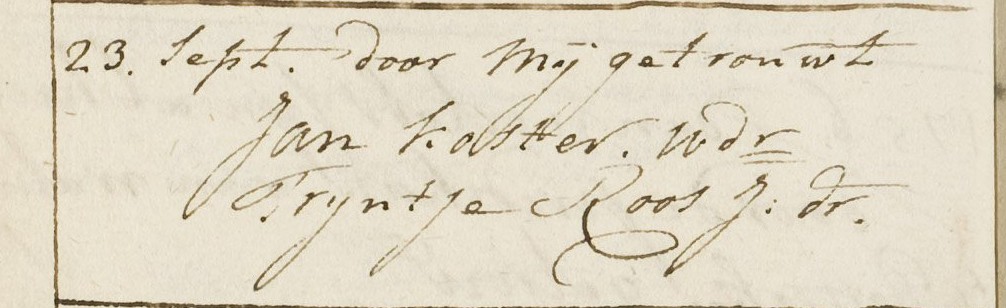 23. Sept. door Mij getrouwt
Jan Kotter. Wdr
Tryntje Roos J: dr.